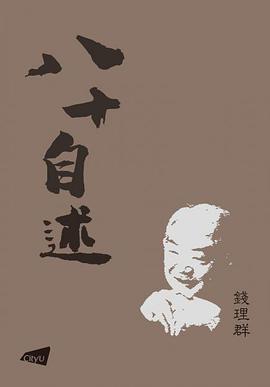 八十自述
錢理群
CityU